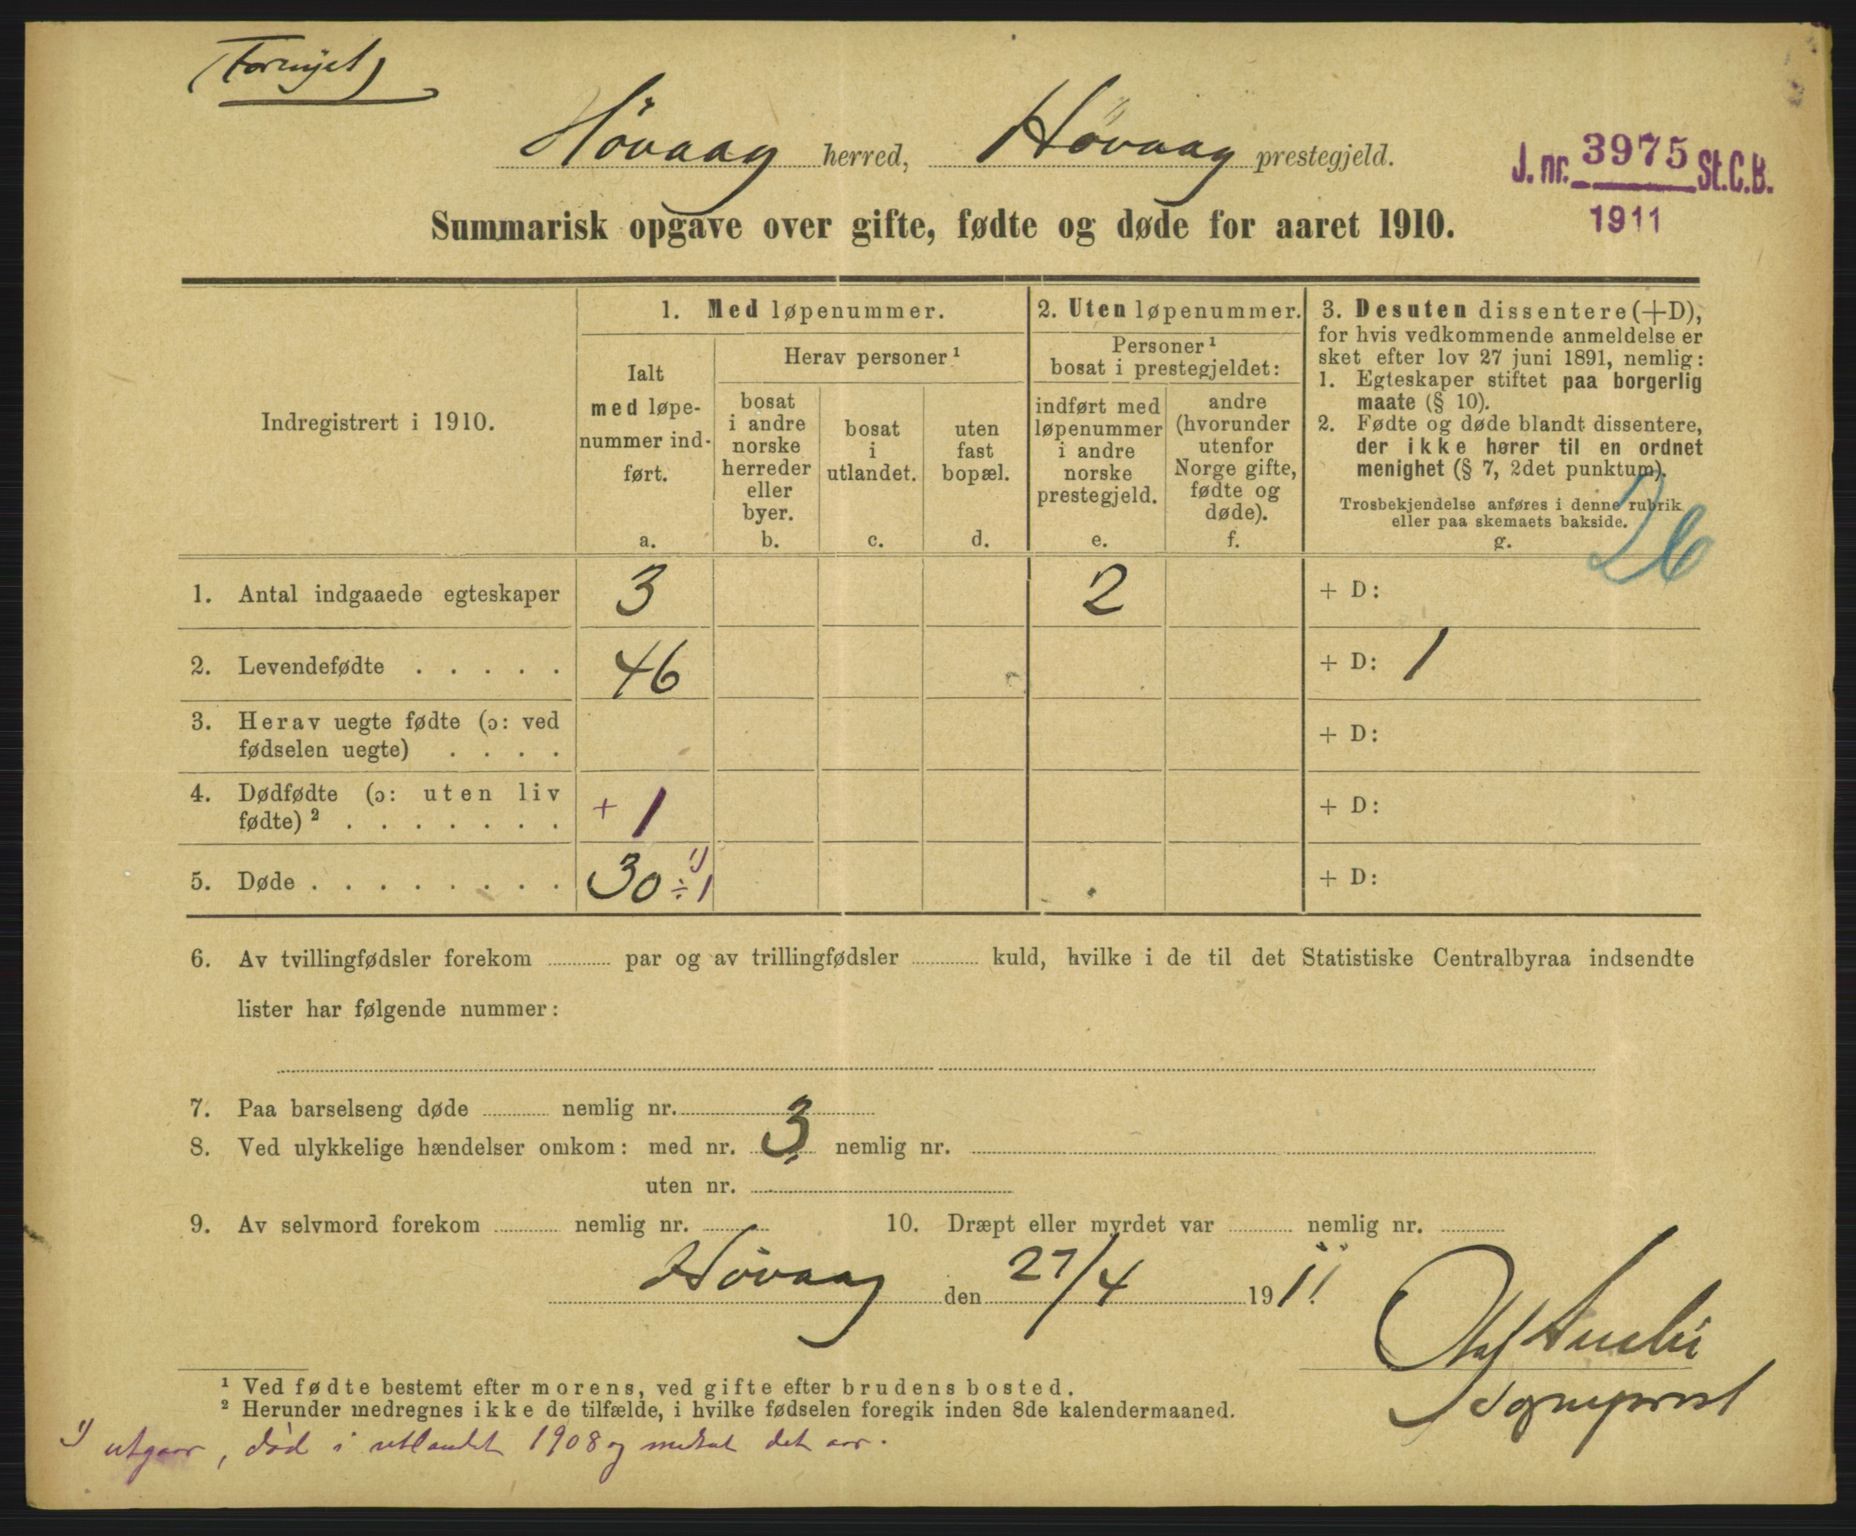 (Fornyet)
Høvaag herred, Høvaag prestegjeld.
J. nr. 3975 St.C.B.
1911
Summarisk opgave over gifte, fødte og døde for aaret 1910.
Indregistrert i 1910.
1. Med løpenummer.
Ialt
med løpe-
nummer ind-
ført.
a.
Herav personer¹
bosat
i andre
norske
herreder
eller
byer.
b.
bosat
i
utlandet.
c.
uten
fast
bopæl.
d.
2. Uten løpenummer.
Personer¹
bosat i prestegjeldet:
indført med
løpenummer
i andre
norske
prestegjeld.
e.
andre
(hvorunder
utenfor
Norge gifte,
fødte og
døde).
f.
3. Desuten dissentere (+D),
for hvis vedkommende anmeldelse er
sket efter lov 27 juni 1891, nemlig:
1. Egteskaper stiftet paa borgerlig
maate (§ 10).
2. Fødte og døde blandt dissentere,
der ikke hører til en ordnet
menighet (§ 7, 2det punktum).
Trosbekjendelse anføres i denne rubrik
eller paa skemaets bakside.
g.
26
1. Antal indgaaede egteskaper 3 2 + D:
2. Levendefødte . . . . . 46 + D: 1
3. Herav uegte fødte (ɔ: ved
fødselen uegte) . . . . + D:
4. Dødfødte (ɔ: uten liv
fødte)² . . . . . . . + 1 + D:
5. Døde . . . . . . . . 30 ÷ 1 ¹) + D:
6. Av tvillingfødsler forekom ......... par og av trillingfødsler ......... kuld, hvilke i de til det Statistiske Centralbyraa indsendte
lister har følgende nummer:
7. Paa barselseng døde ......... nemlig nr.
8. Ved ulykkelige hændelser omkom: med nr. 3 nemlig nr.
uten nr.
9. Av selvmord forekom ......... nemlig nr. ......... 10. Dræpt eller myrdet var ......... nemlig nr. .........
Høvaag den 27/4 1911.
Olaf
Sogneprest
¹ Ved fødte bestemt efter morens, ved gifte efter brudens bosted.
² Herunder medregnes ikke de tilfælde, i hvilke fødselen foregik inden 8de kalendermaaned.
¹) utgaar, død i utlandet 1908 og medtat det aar.